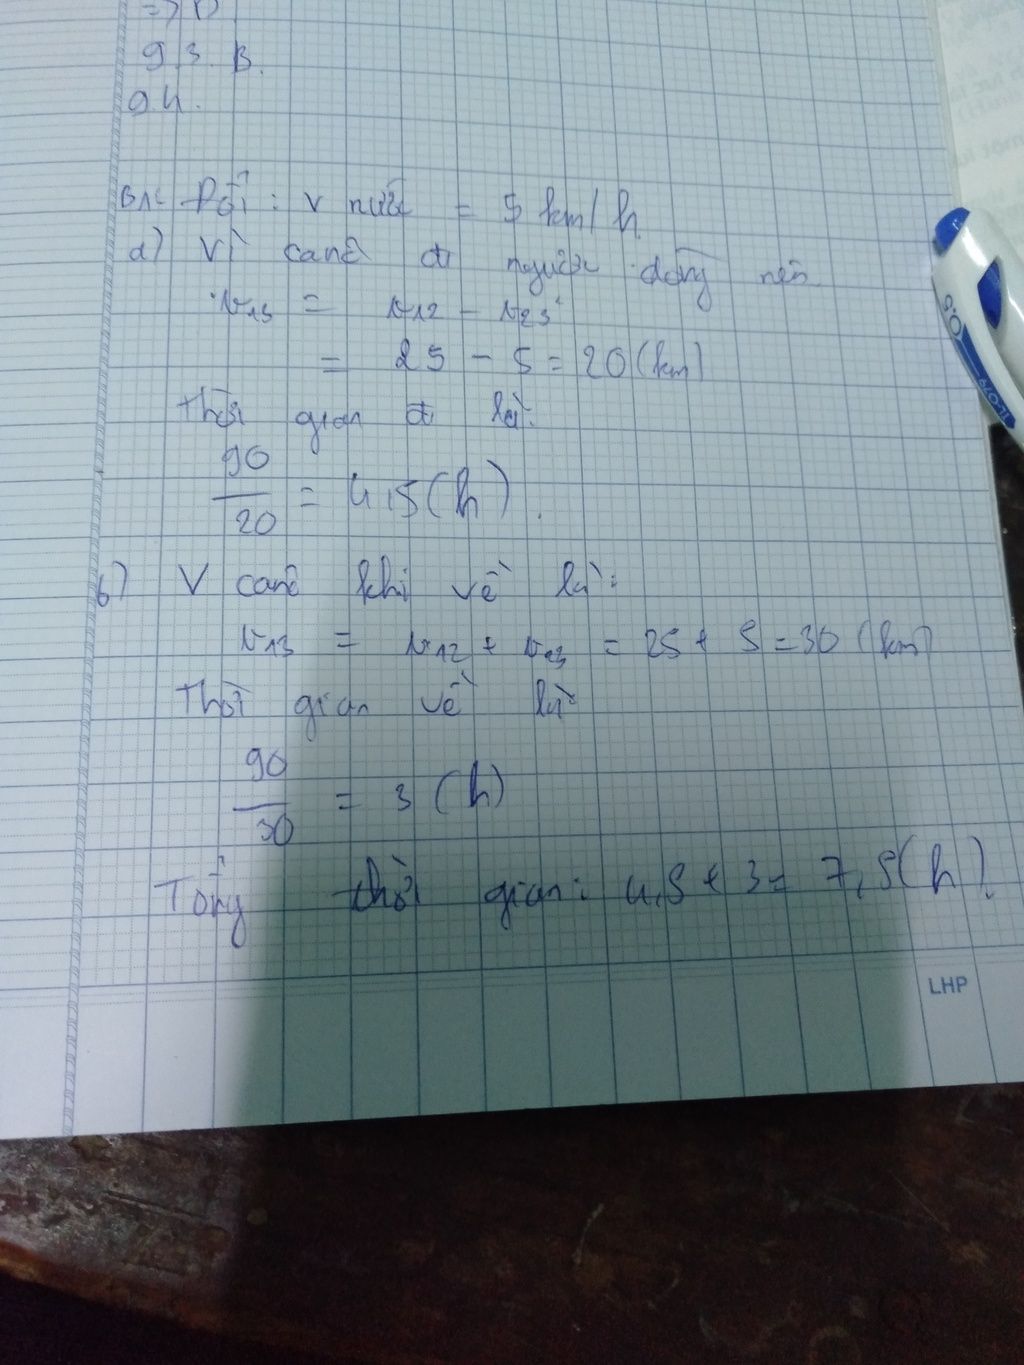 => D
9.3. B.
9.4.
BAL Đổi: v nước = 5 km/h
a) Vì canô đi ngược dòng nên
v13 = v12 - v23
= 25 - 5 = 20 (km)
Thời gian đi là:
90/20 = 4,5 (h).
b) V canô khi về là:
v13 = v12 + v23 = 25 + 5 = 30 (km)
Thời gian về là
90/30 = 3 (h)
Tổng thời gian: 4,5 + 3 = 7,5 (h).
LHP
0.5
TL-079